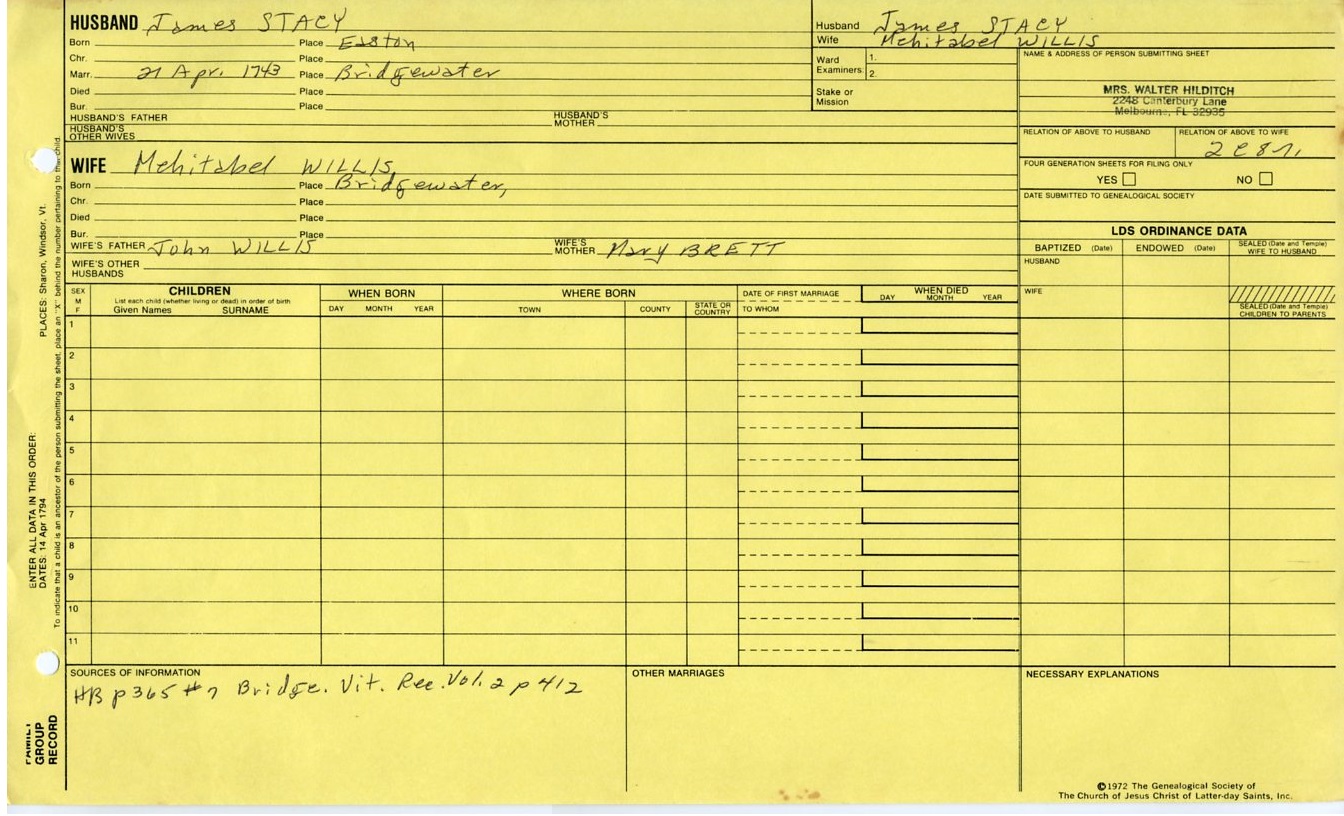 HUSBAND James STACY
Born Place Easton
Chr. Place
Marr. 21 Apr. 1743 Place Bridgewater
Died Place
Bur. Place
HUSBAND'S FATHER HUSBAND'S MOTHER
HUSBAND'S OTHER WIVES
Husband James STACY
Wife Mehitabel WILLIS
Ward Examiners: 1.
2.
Stake or Mission
NAME & ADDRESS OF PERSON SUBMITTING SHEET
MRS. WALTER HILDITCH
2248 Canterbury Lane
Melbourne, FL 32935
RELATION OF ABOVE TO HUSBAND RELATION OF ABOVE TO WIFE
FOUR GENERATION SHEETS FOR FILING ONLY
YES NO
DATE SUBMITTED TO GENEALOGICAL SOCIETY
WIFE Mehitabel WILLIS
Born Place Bridgewater,
Chr. Place
Died Place
Bur. Place
WIFE'S FATHER John WILLIS WIFE'S MOTHER Mary BRETT
WIFE'S OTHER HUSBANDS
LDS ORDINANCE DATA
BAPTIZED (Date) ENDOWED (Date) SEALED (Date and Temple) WIFE TO HUSBAND
HUSBAND
WIFE
SEALED (Date and Temple) CHILDREN TO PARENTS
SEX M F
CHILDREN
List each child (whether living or dead) in order of birth
Given Names SURNAME
WHEN BORN
DAY MONTH YEAR
WHERE BORN
TOWN COUNTY STATE OR COUNTRY
DATE OF FIRST MARRIAGE
TO WHOM
WHEN DIED
DAY MONTH YEAR
1
2
3
4
5
6
7
8
9
10
11
SOURCES OF INFORMATION
HB p365 #7 Bridge. Vit. Rec. Vol. 2 p 412
OTHER MARRIAGES
NECESSARY EXPLANATIONS
©1972 The Genealogical Society of
The Church of Jesus Christ of Latter-day Saints, Inc.
FAMILY GROUP RECORD
ENTER ALL DATA IN THIS ORDER:
DATES: 14 Apr 1794
PLACES: Sharon, Windsor, Vt.
To indicate that a child is an ancestor of the person submitting the sheet, place an "X" behind the number pertaining to the child.